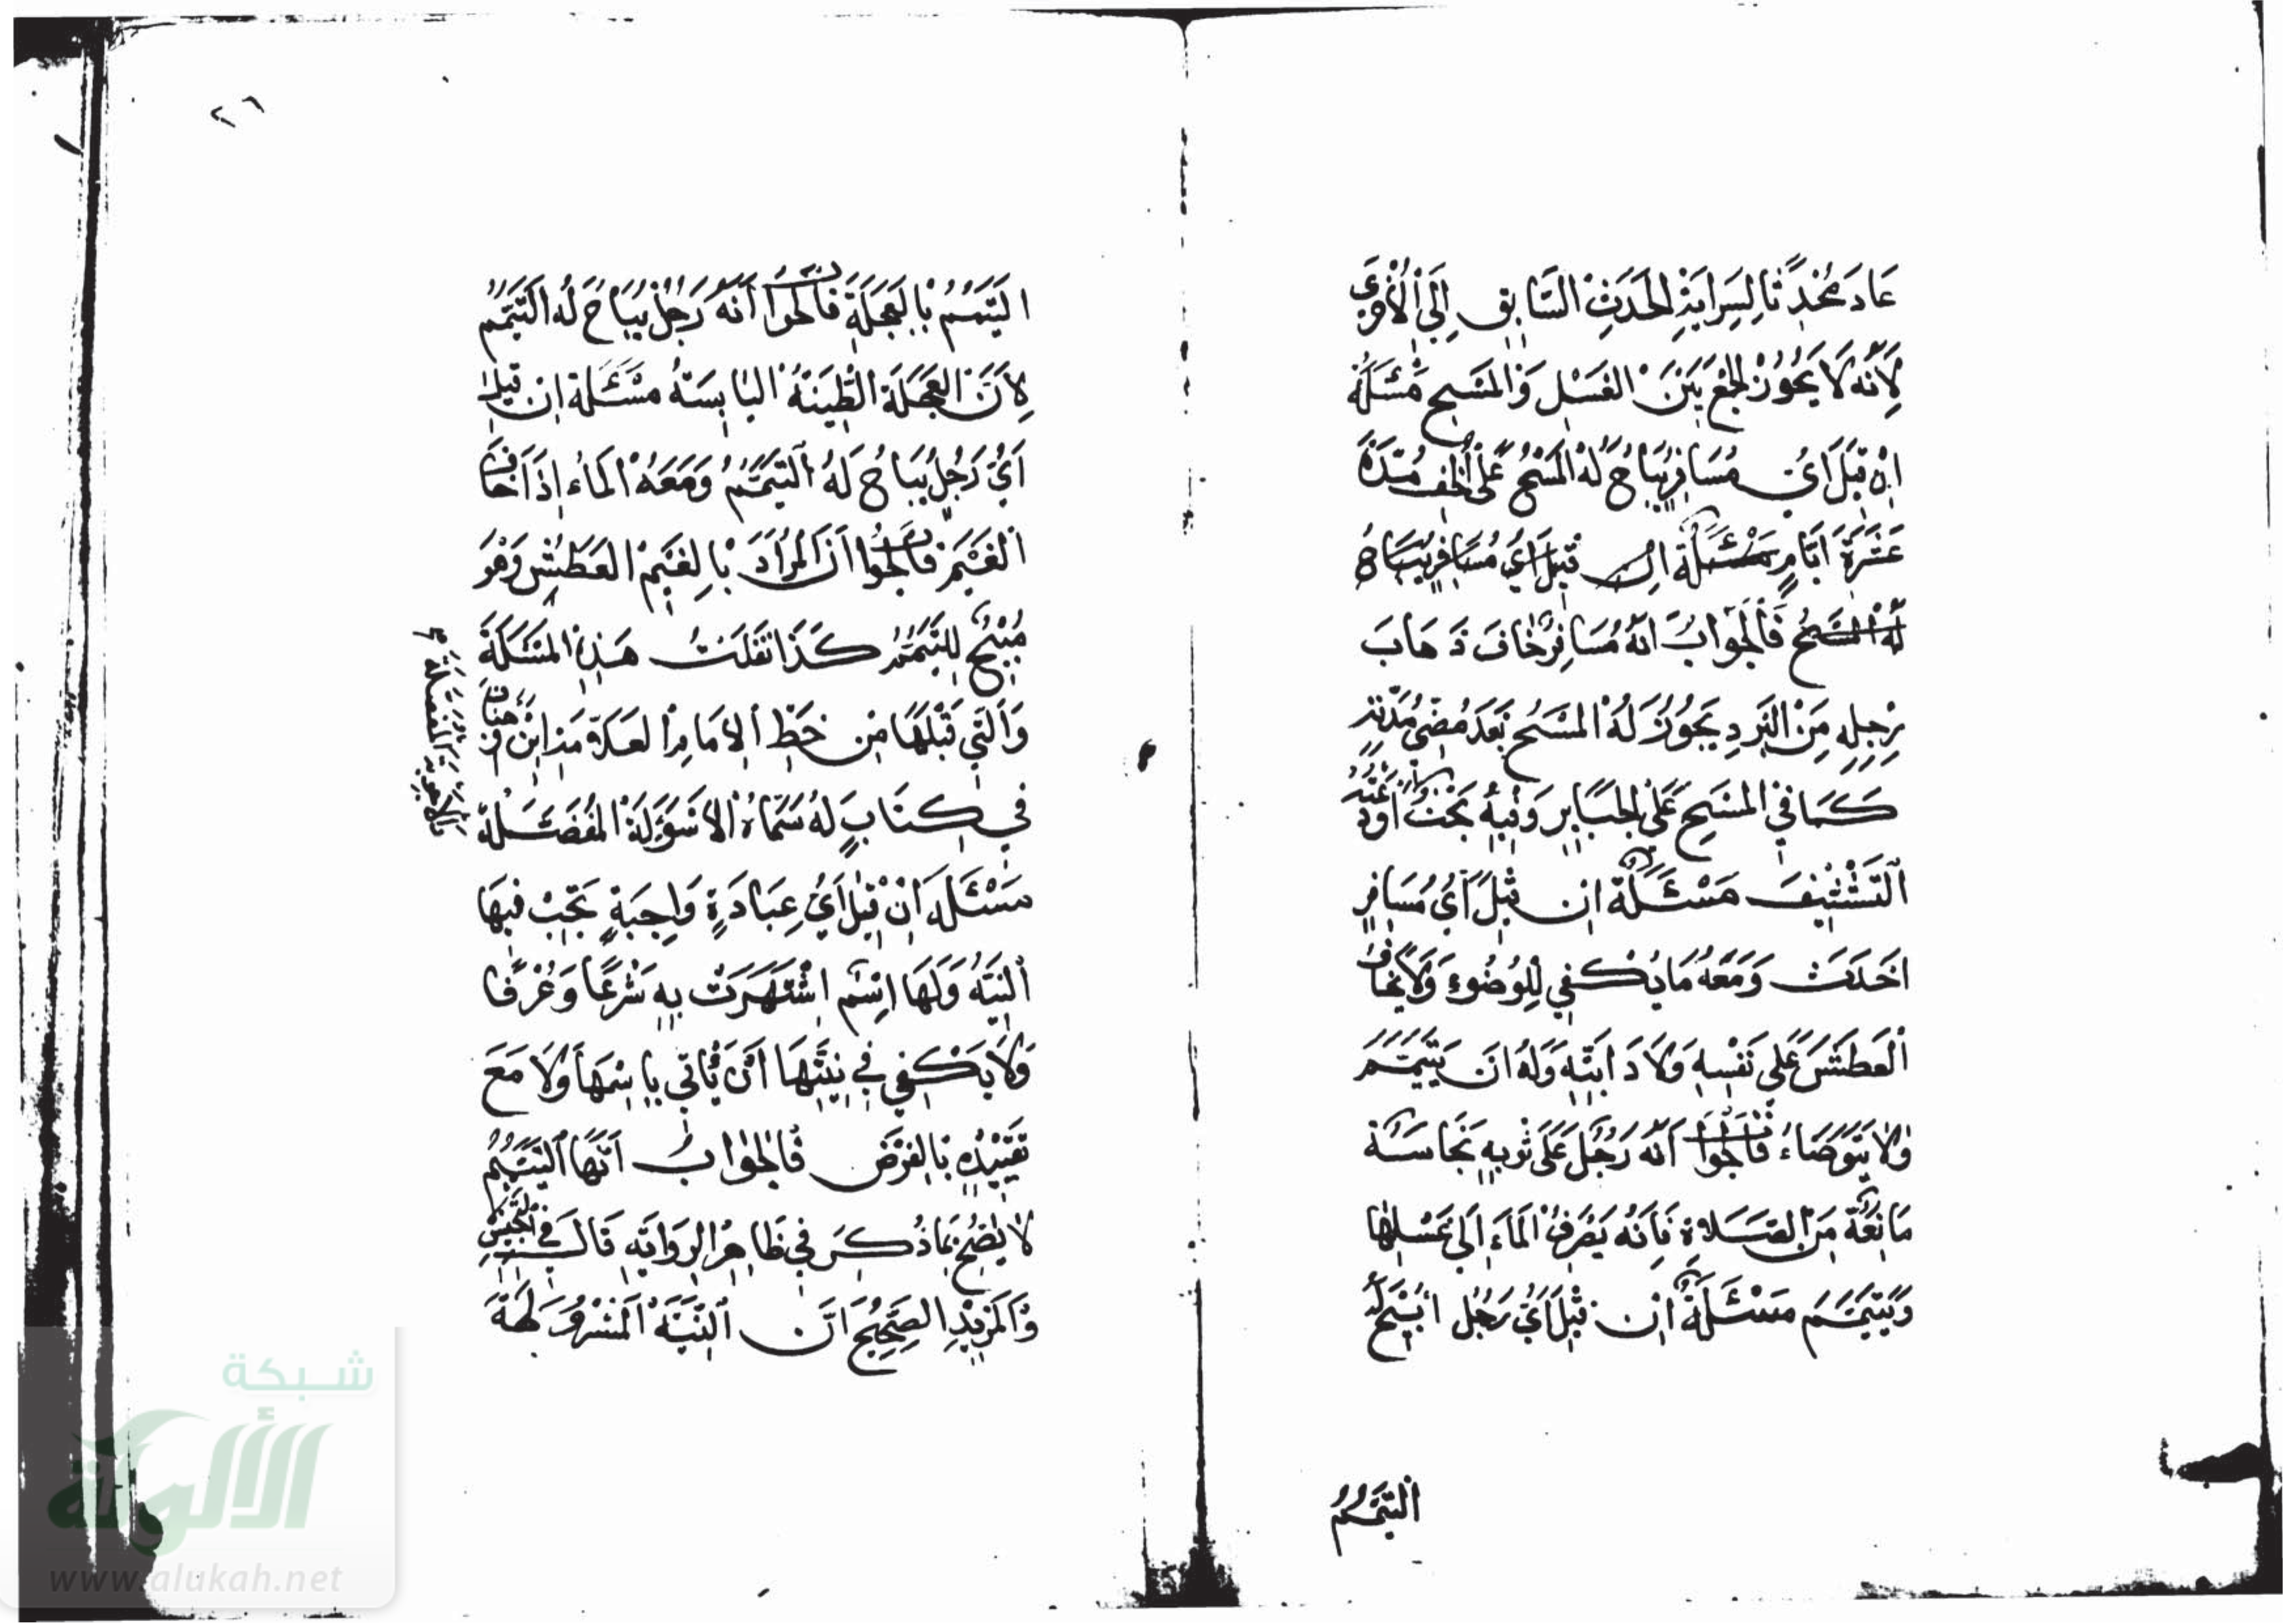 عاد محدثا لسراية الحدث السابق إلى الأخرى
لأنه لا يجوز الجمع بين الغسل والمسح مسئلة
ان قيل اي مسافر يباح له المسح على الخف مدة
عشرة ايام مسئلة ان قيل اي مسافر يباح
له المسح فالجواب انه مسافر خاف ذهاب
رجله من البرد يجوز له المسح بعد مضي مدته
كما في المسح على الجبائر وفيه بحث اودعته
التشنيف مسئلة ان قيل اي مسافر
احدث ومعه ما يكفي للوضوء ولا يخاف
العطش على نفسه ولا دابته وله ان يتيمم
ولا يتوضاء فالجواب انه رجل على ثوبه نجاسة
مانعة من الصلاة فانه يصرف الماء الى غسلها
ويتيمم مسئلة ان قيل اي رجل ابيح له
التيمم
٢٦
التيمم بالعجلة فالجواب انه رجل يباح له التيمم
لان العجلة الطينة اليابسة مسئلة ان قيل
اي رجل يباح له التيمم ومعه الماء اذا خاف
الغيم فالجواب ان المراد بالغيم العطش وهو
مبيح للتيمم كذا نقلت هذه المسئلة
والتي قبلها من خط الامام العلامة ابن
في كتاب له سماه الاسؤلة المفضلة
مسئلة ان قيل اي عبادة واجبة تجب فيها
النية ولها اسم اشتهرت به شرعا وعرفا
ولا يكفي في نيتها أن يأتي باسمها ولا مع
تقييده بالفرض فالجواب انها التيمم
لا يصح بما ذكر في ظاهر الرواية قال في التجنيس
والمزيد الصحيح ان النية المشروطة
شبكة
الألوكة
www.alukah.net